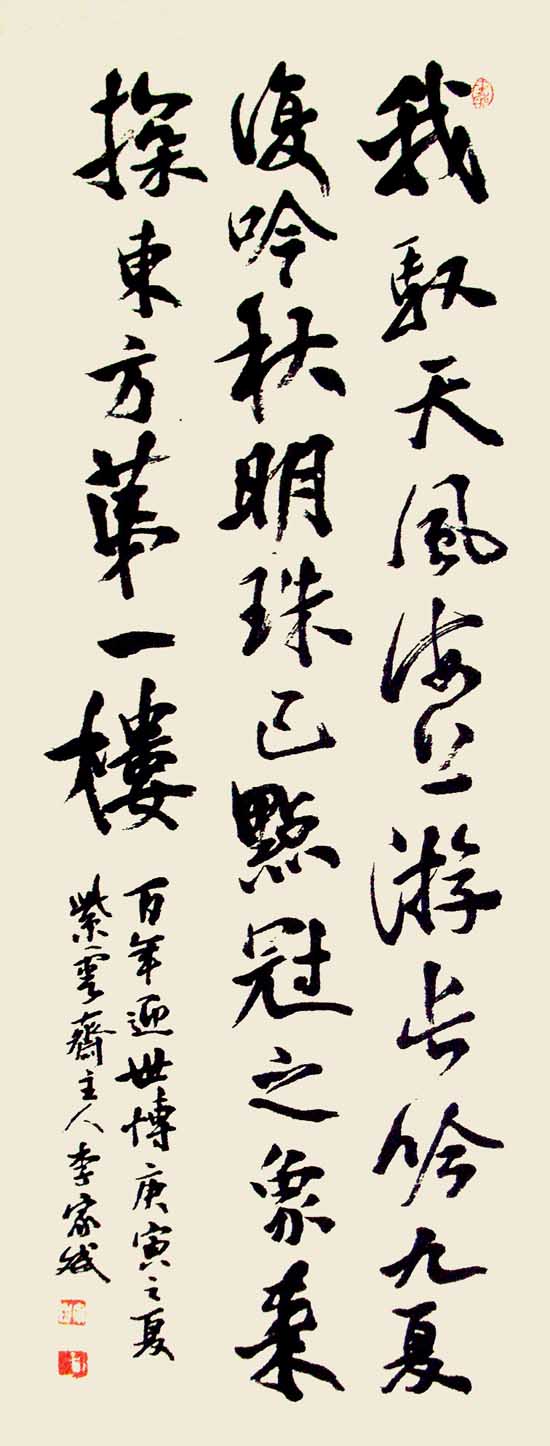 我馭天風海上游長吟九夏
復吟秋明珠已點冠之象來
探東方第一樓
百年迎世博庚寅之夏
紫雲齋主人李家